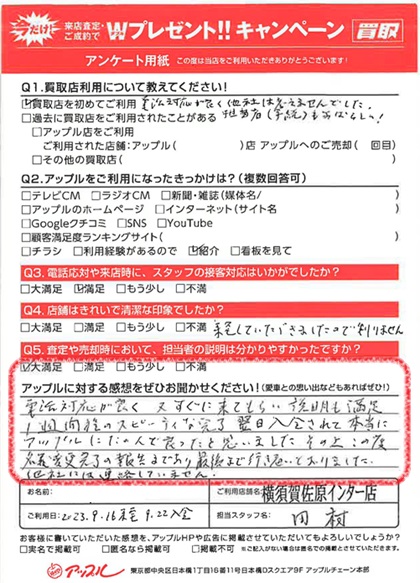 だけ! 来店査定・ご成約で Wプレゼント!! キャンペーン 買取
アンケート用紙 この度は当店をご利用いただきありがとうございます!
Q1.買取店利用について教えてください!
☑買取店を初めてご利用 電話対応が良く他社は考えませんでした。
□過去に買取店をご利用されたことがある 担当者
□アップル店をご利用
ご利用された店舗:アップル( )店 アップルへのご売却( 回目)
□その他の買取店( )
Q2.アップルをご利用になったきっかけは?(複数回答可)
□テレビCM □ラジオCM □新聞・雑誌(媒体名/ )
□アップルのホームページ □インターネット(サイト名 )
□Googleクチコミ □SNS □YouTube
□顧客満足度ランキングサイト( )
□チラシ □利用経験があるので ☑紹介 □看板を見て
Q3.電話応対や来店時に、スタッフの接客対応はいかがでしたか?
□大満足 ☑満足 □もう少し □不満
Q4.店舗はきれいで清潔な印象でしたか?
□大満足 □満足 □もう少し □不満 来宅していただきましたので判りません
Q5.査定や売却時において、担当者の説明は分かりやすかったですか?
☑大満足 □満足 □もう少し □不満
アップルに対する感想をぜひお聞かせください!(愛車との思い出などもあればぜひ!)
電話対応が良く 又すぐに来てもらい 説明も満足
1週間程のスピーディな完了 翌日入金されて本当に
アップルにたのんで良かったと思いました その上この度
名義変更完了の報告まであり最後まで行き届いておりました。
他社には連絡していません。
お名前: ご利用店舗名: 横須賀佐原インター店
ご利用日:2023.9.16来宅 9.22入金 担当スタッフ名: 田村
お客様に書いていただいた感想を、アップルHPや広告に掲載させていただいてもよろしいでしょうか?
□実名で掲載可 □匿名なら掲載可 □掲載不可 ※ご記入がない場合は匿名での掲載とさせていただきます。
アップル 東京都中央区日本橋1丁目16番11号日本橋Dスクエア9F アップルチェーン本部